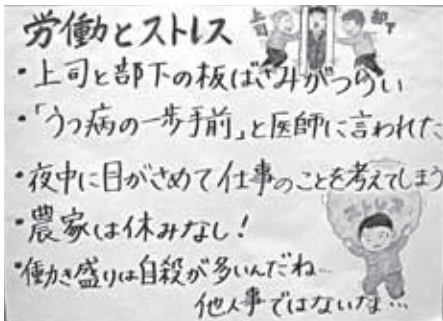 労働とストレス
上司
部下
・上司と部下の板ばさみがつらい
・「うつ病の一歩手前」と医師に言われた
・夜中に目がさめて仕事のことを考えてしまう
ストレス
・農家は休みなし!
・働き盛りは自殺が多いんだね…
他人事ではないな…